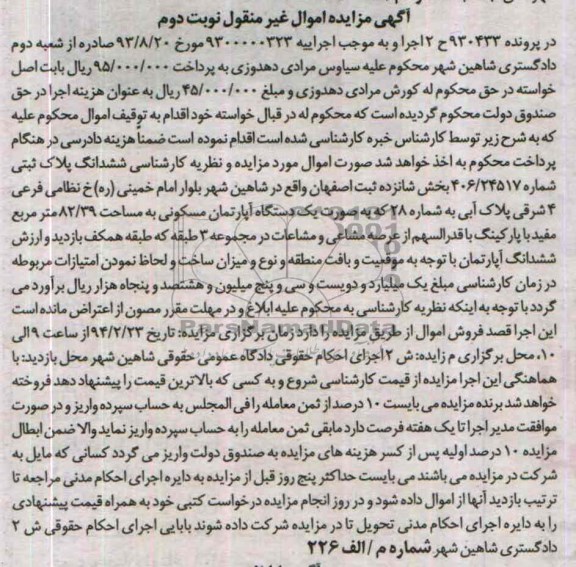 آگهی مزایده اموال غیر منقول نوبت دوم
در پرونده ۹۳۰۴۳۳ح ۲ اجرا و به موجب اجراییه ۹۳۰۰۰۰۰۳۲۳ مورخ ۹۳/۸/۲۰ صادره از شعبه دوم
دادگستری شاهین شهر محکوم علیه سیاوس مرادی دهدوزی به پرداخت ۹۵/۰۰۰/۰۰۰ ریال بابت اصل
خواسته در حق محکوم له کورش مرادی دهدوزی و مبلغ ۴۵/۰۰۰/۰۰۰ ریال به عنوان هزینه اجرا در حق
صندوق دولت محکوم گردیده است که محکوم له در قبال خواسته خود اقدام به توقیف اموال محکوم علیه
که به شرح زیر توسط کارشناس خبره کارشناسی شده است اقدام نموده است ضمناً هزینه دادرسی در هنگام
پرداخت محکوم به اخذ خواهد شد صورت اموال مورد مزایده و نظریه کارشناسی ششدانگ پلاک ثبتی
شماره ۴۰۶/۲۴۵۱۷ بخش شانزده ثبت اصفهان واقع در شاهین شهر بلوار امام خمینی (ره) خ نظامی فرعی
۴ شرقی پلاک آبی به شماره ۲۸ که به صورت یک دستگاه آپارتمان مسکونی به مساحت ۸۲/۳۹ متر مربع
مفید با پارکینگ با قدرالسهم از عرصه مشاعی و مشاعات در مجموعه ۳ طبقه که طبقه همکف بازدید و ارزش
ششدانگ آپارتمان با توجه به موقعیت و بافت منطقه و نوع و میزان ساخت و لحاظ نمودن امتیازات مربوطه
در زمان کارشناسی مبلغ یک میلیارد و دویست و سی و پنج میلیون و هشتصد و پنجاه هزار ریال برآورد می
گردد با توجه به اینکه نظریه کارشناسی به محکوم علیه ابلاغ و در مهلت مقرر مصون از اعتراض مانده است
این اجرا قصد فروش اموال از طریق مزایده را دارد زمان برگزاری مزایده: تاریخ ۹۴/۲/۲۳ از ساعت ۹ الی
۱۰، محل برگزاری م زایده: ش ۲ اجرای احکام حقوقی دادگاه عمومی حقوقی شاهین شهر محل بازدید: با
هماهنگی این اجرا مزایده از قیمت کارشناسی شروع و به کسی که بالاترین قیمت را پیشنهاد دهد فروخته
خواهد شد برنده مزایده می بایست ۱۰ درصد از ثمن معامله را فی المجلس به حساب سپرده واریز و در صورت
موافقت مدیر اجرا تا یک هفته فرصت دارد مابقی ثمن معامله را به حساب سپرده واریز نماید والا ضمن ابطال
مزایده ۱۰ درصد اولیه پس از کسر هزینه های مزایده به صندوق دولت واریز می گردد کسانی که مایل به
شرکت در مزایده می باشند می بایست حداکثر پنج روز قبل از مزایده به دایره اجرای احکام مدنی مراجعه تا
ترتیب بازدید آنها از اموال داده شود و در روز انجام مزایده درخواست کتبی خود به همراه قیمت پیشنهادی
را به دایره اجرای احکام مدنی تحویل تا در مزایده شرکت داده شوند بابایی اجرای احکام حقوقی ش ۲
دادگستری شاهین شهر شماره م / الف ۲۲۶